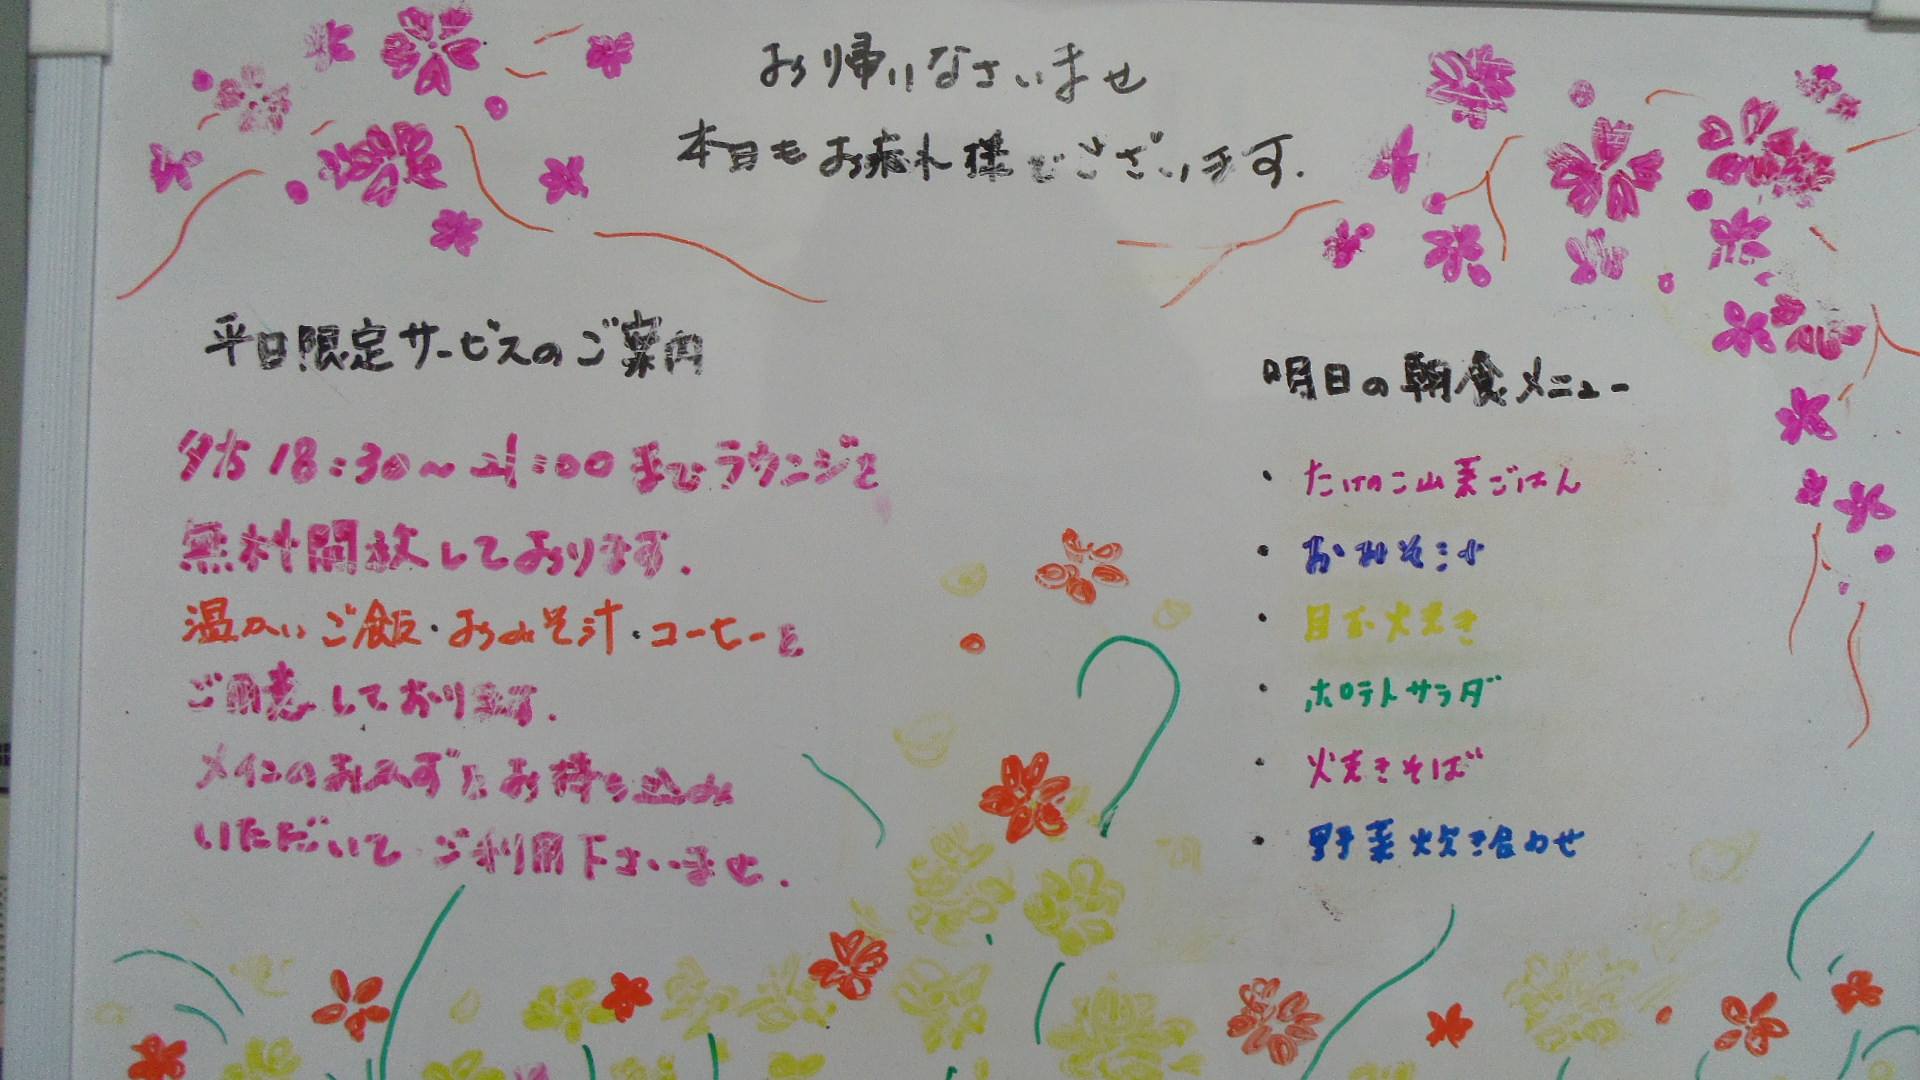 お帰りなさいませ
本日もお疲れ様でございます.
平日限定サービスのご案内
夕方 18:30~21:00までラウンジを
無料開放しております.
温かいご飯・おみそ汁・コーヒーを
ご用意しております.
メインのおかずをお持ち込み
いただいて ご利用下さいませ.
明日の朝食メニュー
・たけのこ山菜ごはん
・おみそ汁
・目玉焼き
・ポテトサラダ
・焼きそば
・野菜炊き合わせ